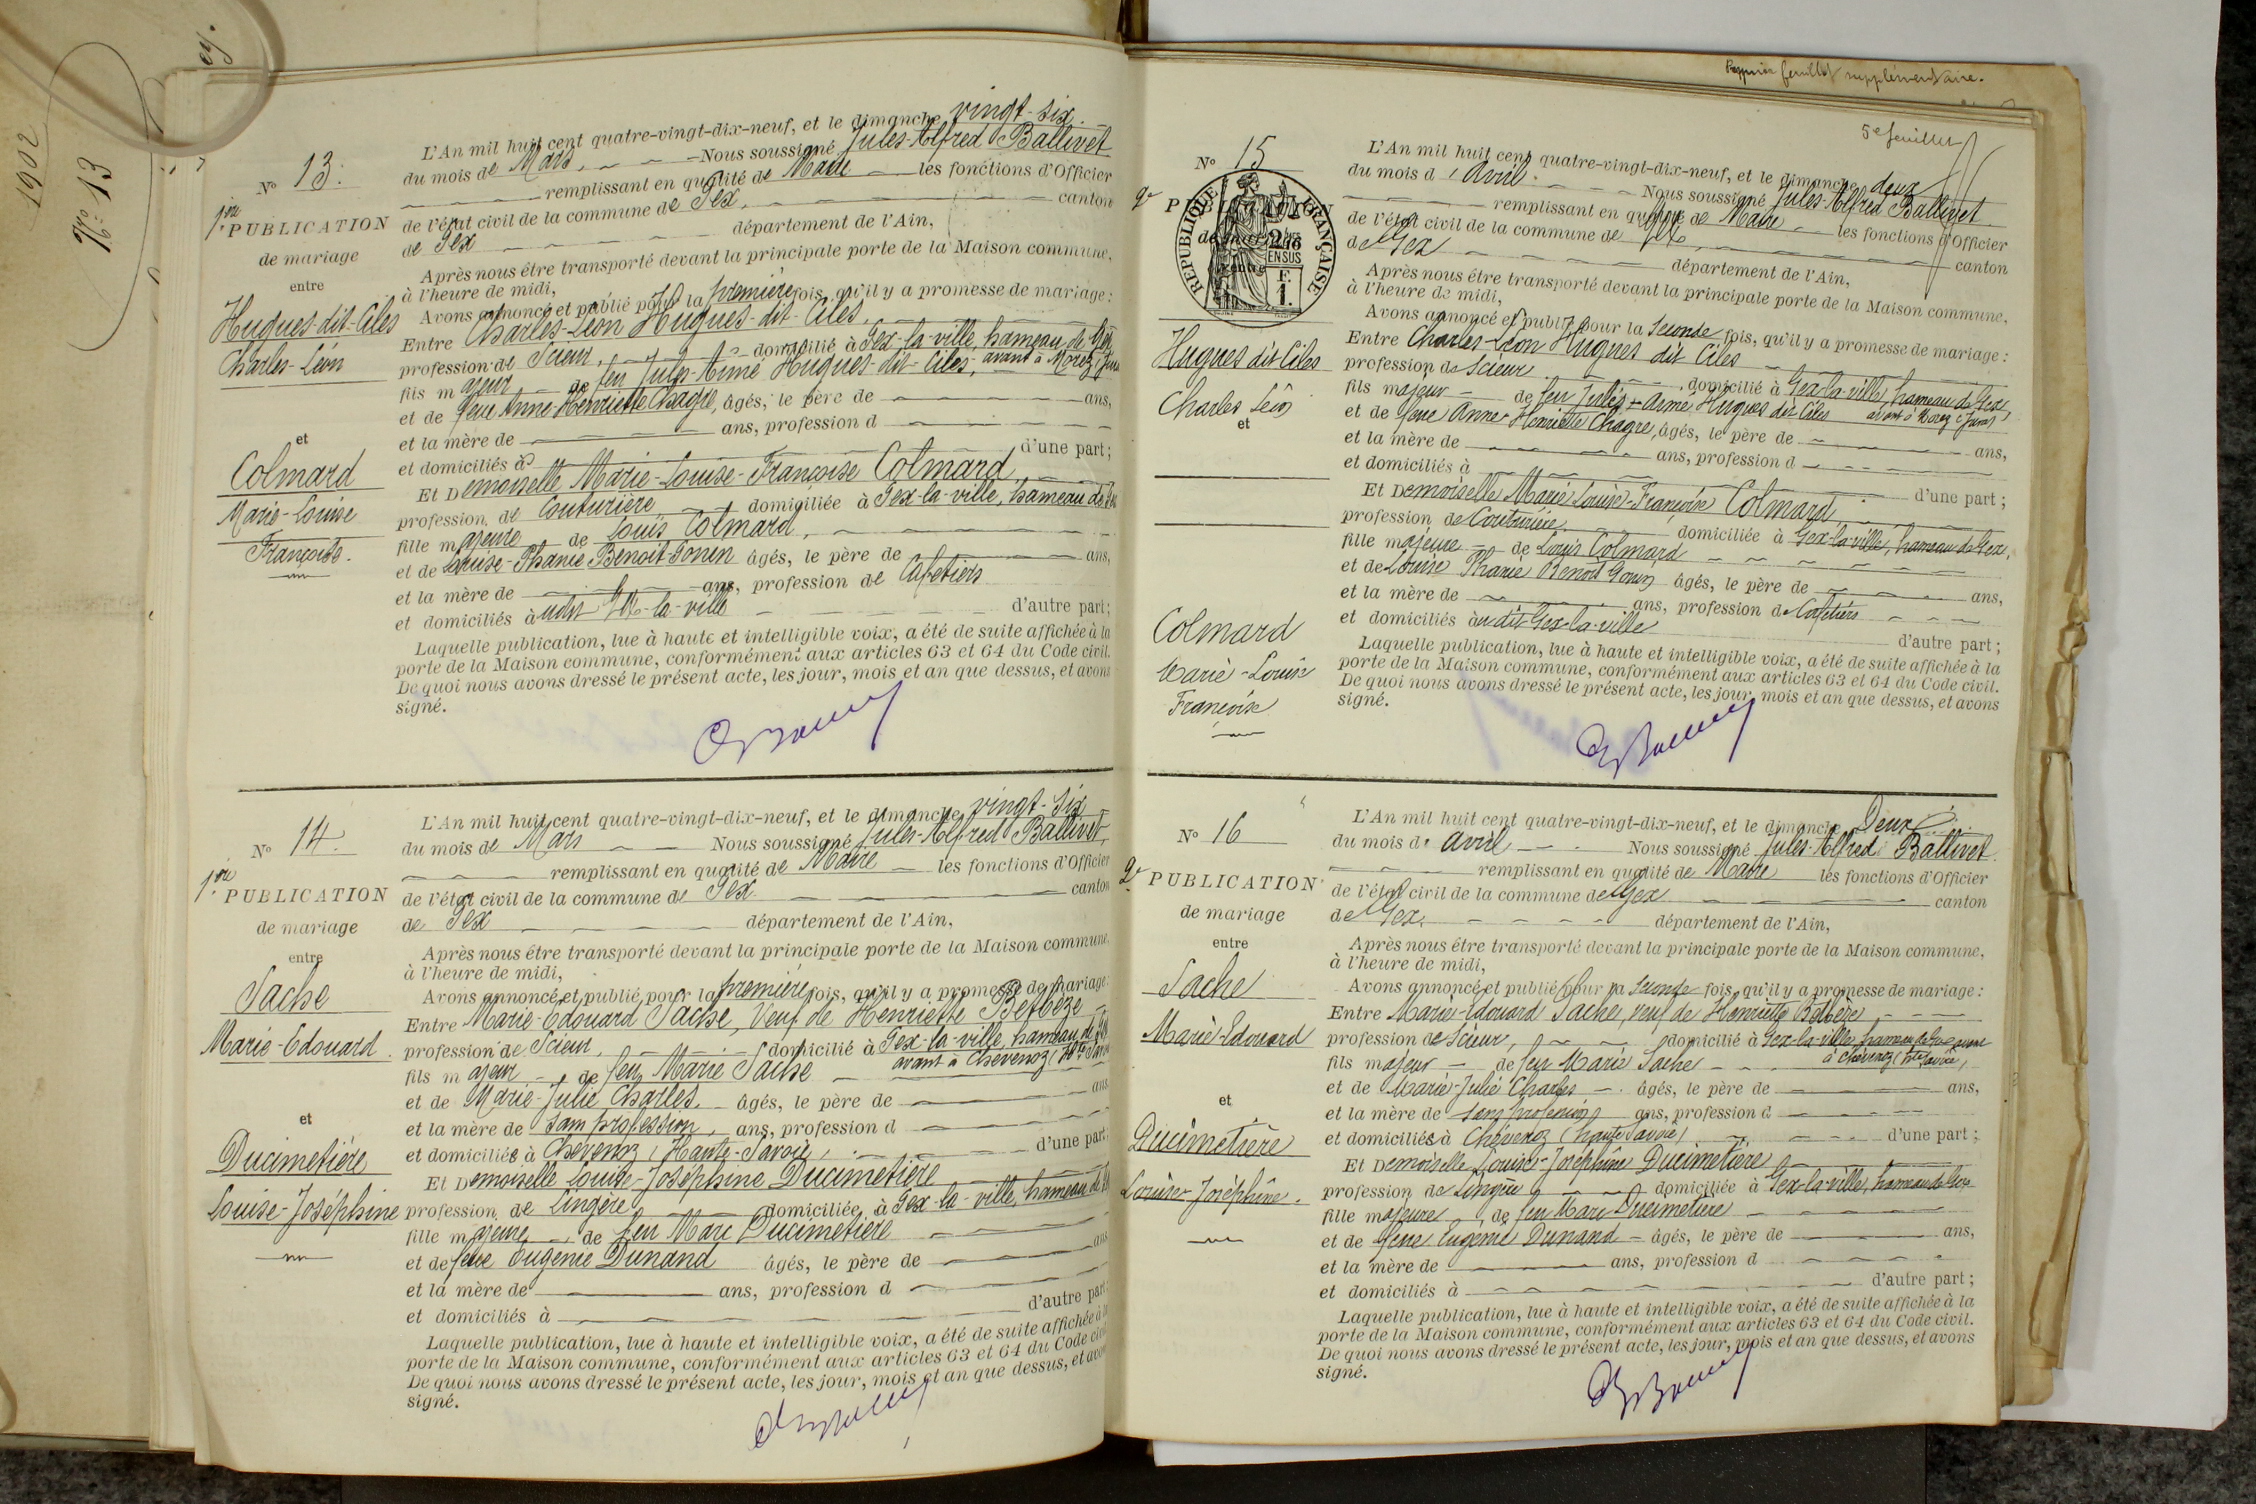 1902
N° 13
N° 13.
1re
PUBLICATION
de mariage
entre
Hugues-dit-Cilès
Charles-Léon
et
Colmard
Marie-Louise
Françoise.
L'An mil huit cent quatre-vingt-dix-neuf, et le dimanche vingt-six
du mois de Mars, Nous soussigné Jules-Alfred Ballivet
remplissant en qualité de Maire les fonctions d'Officier
de l'état civil de la commune de Gex, canton
de Gex département de l'Ain,
Après nous être transporté devant la principale porte de la Maison commune,
à l'heure de midi,
Avons annoncé et publié pour la première fois, qu'il y a promesse de mariage:
Entre Charles-Léon Hugues-dit-Cilès,
profession de Scieur, domicilié à Gex-la-ville, hameau de Gex
fils majeur de feu Jules-Aimé Hugues-dit-Cilès, avant à Morez (Jura
et de feue Anne-Henriette Chagre, âgés, le père de ans,
et la mère de ans, profession d
et domiciliés à d'une part;
Et Demoiselle Marie-Louise-Françoise Colmard
profession de Couturière domiciliée à Gex-la-ville, hameau de Gex
fille majeure de Louis Colmard,
et de Louise-Phanie Benoit-Gonin âgés, le père de ans,
et la mère de ans, profession de Cafetiers
et domiciliés à udit Gex-la-ville d'autre part;
Laquelle publication, lue à haute et intelligible voix, a été de suite affichée à la
porte de la Maison commune, conformément aux articles 63 et 64 du Code civil.
De quoi nous avons dressé le présent acte, les jour, mois et an que dessus, et avons
signé.
N° 14.
1re
PUBLICATION
de mariage
entre
Sache
Marie-Edouard
et
Ducimetière
Louise-Joséphine
L'An mil huit cent quatre-vingt-dix-neuf, et le dimanche vingt-six
du mois de Mars Nous soussigné Jules-Alfred Ballivet,
remplissant en qualité de Maire les fonctions d'Officier
de l'état civil de la commune de Gex canton
de Gex département de l'Ain,
Après nous être transporté devant la principale porte de la Maison commune,
à l'heure de midi,
Avons annoncé et publié pour la première fois, qu'il y a promesse de mariage:
Entre Marie-Edouard Sache, Veuf de Henriette Betbèze
profession de Scieur, domicilié à Gex-la-ville, hameau de Gex
avant à Chevenoz (Hte Savoie
fils majeur de feu Marie Sache
et de Marie-Julie Charles, âgés, le père de ans
et la mère de sans profession, ans, profession d
et domiciliés à Chevenoz (Haute-Savoie) d'une part;
Et Demoiselle Louise-Joséphine Ducimetière
profession de Lingère domiciliée à Gex-la-ville, hameau de Gex
fille majeure de feu Marc Ducimetière
et de feue Eugénie Dunand âgés, le père de ans
et la mère de ans, profession d
et domiciliés à d'autre part;
Laquelle publication, lue à haute et intelligible voix, a été de suite affichée à la
porte de la Maison commune, conformément aux articles 63 et 64 du Code civil
De quoi nous avons dressé le présent acte, les jour, mois et an que dessus, et avons
signé.
feuillet supplémentaire.
5e feuillet
N° 15
2e
PUBLICATION
de mariage
entre
RÉPUBLIQUE FRANÇAISE
2/10
EN SUS
F.
1.
Hugues dit Cilès
Charles Léon
et
Colmard
Marie-Louise
Françoise
L'An mil huit cent quatre-vingt-dix-neuf, et le dimanche deux
du mois d'Avril. Nous soussigné Jules-Alfred Ballivet
remplissant en qualité de Maire les fonctions d'Officier
de l'état civil de la commune de Gex, canton
de Gex département de l'Ain,
Après nous être transporté devant la principale porte de la Maison commune,
à l'heure de midi,
Avons annoncé et publié pour la Seconde fois, qu'il y a promesse de mariage:
Entre Charles-Léon Hugues dit Cilès
profession de Scieur domicilié à Gex-la-ville, hameau de Gex,
fils majeur de feu Jules-Aimé Hugues dit Cilès avant à Morez (Jura)
et de feue Anne-Henriette Chagre, âgés, le père de ans,
et la mère de ans, profession d
et domiciliés à d'une part;
Et Demoiselle Marie Louise-Françoise Colmard
profession de Couturière domiciliée à Gex-la-ville, hameau de Gex,
fille majeure de Louis Colmard
et de Louise Phanie Benoit Gonin âgés, le père de ans,
et la mère de ans, profession de Cafetiers
et domiciliés à udit Gex-la-ville d'autre part;
Laquelle publication, lue à haute et intelligible voix, a été de suite affichée à la
porte de la Maison commune, conformément aux articles 63 et 64 du Code civil.
De quoi nous avons dressé le présent acte, les jour, mois et an que dessus, et avons
signé.
N° 16
2e
PUBLICATION
de mariage
entre
Sache
Marie-Edouard
et
Ducimetière
Louise-Joséphine.
L'An mil huit cent quatre-vingt-dix-neuf, et le dimanche Deux
du mois d'avril Nous soussigné Jules-Alfred Ballivet
remplissant en qualité de Maire les fonctions d'Officier
de l'état civil de la commune de Gex canton
de Gex, département de l'Ain,
Après nous être transporté devant la principale porte de la Maison commune,
à l'heure de midi,
Avons annoncé et publié pour la Seconde fois, qu'il y a promesse de mariage:
Entre Marie-Edouard Sache, veuf de Henriette Betbèze
profession de Scieur, domicilié à Gex-la-ville, hameau de Gex avant
à Chevenoz (hte Savoie)
fils majeur de feu Marie Sache
et de Marie-Julie Charles âgés, le père de ans,
et la mère de sans profession ans, profession d
et domiciliés à Chevenoz (haute Savoie) d'une part;
Et Demoiselle Louise-Joséphine Ducimetière
profession de Lingère domiciliée à Gex-la-ville, hameau de Gex
fille majeure de feu Marc Ducimetière
et de feue Eugénie Dunand âgés, le père de ans,
et la mère de ans, profession d
et domiciliés à d'autre part;
Laquelle publication, lue à haute et intelligible voix, a été de suite affichée à la
porte de la Maison commune, conformément aux articles 63 et 64 du Code civil.
De quoi nous avons dressé le présent acte, les jour, mois et an que dessus, et avons
signé.